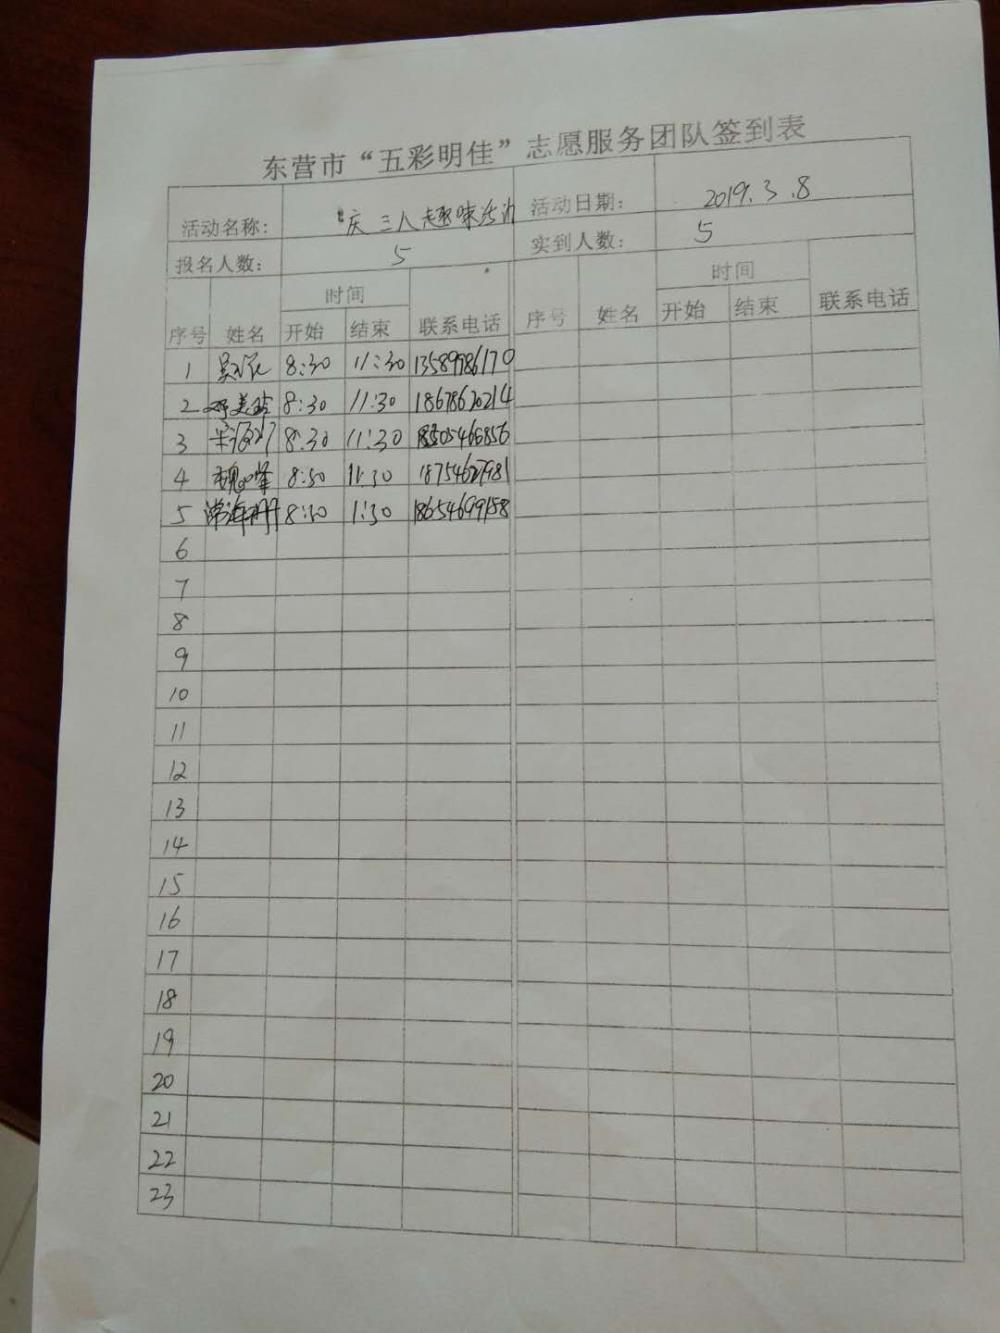 东营市“五彩明佳”志愿服务团队签到表
活动名称： 庆三八趣味活动 活动日期： 2019.3.8
报名人数： 5 实到人数： 5
序号 姓名 时间 联系电话 序号 姓名 时间 联系电话
开始 结束 开始 结束
1 8:30 11:30 13589986170
2 美玲 8:30 11:30 18678620214
3 8:30 11:30 18505466856
4 8:30 11:30 18754627981
5 常海丹 8:30 1:30 18654699158
6
7
8
9
10
11
12
13
14
15
16
17
18
19
20
21
22
23